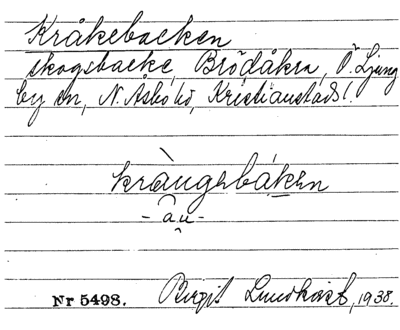 Kråkebacken
skogsbacke, Brödåkra, Ö. Ljung
by sn, N. Åsbo hd, Kristianstads l.
kràngebáken
- âu -
Nr 5498. Birgit Lundkvist, 1938.